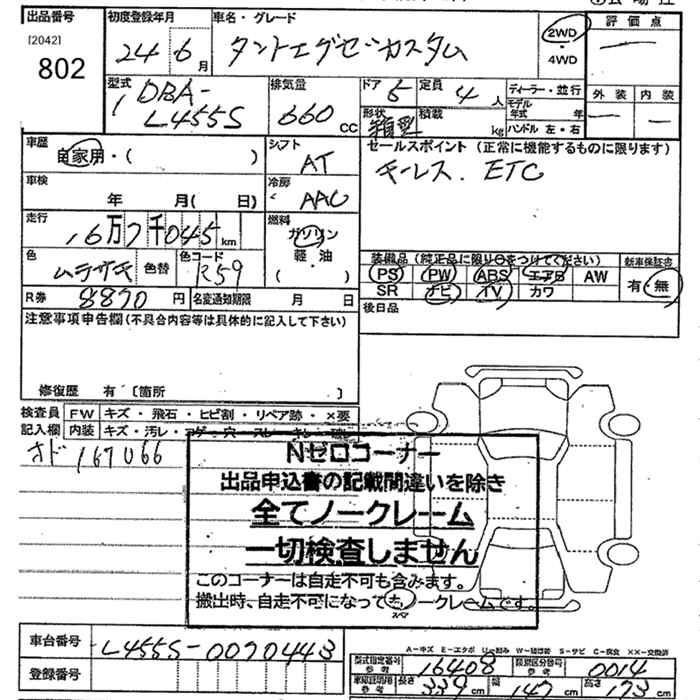 出品番号 初度登録年月 車名・グレード 評価点
[2042]
802
24年6月 タントエグゼ・カスタム
2WD
・
4WD
外装 内装
型式 DBA-
L455S
排気量 660 CC
ドア 5 定員 4 人
形状 箱型 積載 kg
ディーラー・並行
モデル年式 年
ハンドル 左・右
車歴 自家用・( )
シフト AT
セールスポイント (正常に機能するものに限ります)
キーレス. ETC
車検 年 月( 日)
冷房 AAC
走行 16万7千045 km
燃料 ガソリン
軽・油
色 ムラサキ 色替 色コード R59
装備品 (純正品に限り○をつけてください) 新車保証書
PS PW ABS エアB AW 有・無
SR ナビ TV カワ
R券 8870 円 名変通知期限 月 日
後日品
注意事項申告欄 (不具合内容等は具体的に記入して下さい)
修復歴 有 〔箇所 〕
検査員 FW キズ・飛石・ヒビ割・リペア跡・×要
記入欄 内装 キズ・汚レ・
オド 167066
Nゼロコーナー
出品申込書の記載間違いを除き
全てノークレーム
一切検査しません
このコーナーは自走不可も含みます。
搬出時、自走不可になってもノークレームです。
スペア
車台番号 L455S-0070443
登録番号
A-キズ E-エクボ U-凹み W-補修跡 S-サビ C-腐食 XX-交換済
型式指定番号 参考 16408 類別区分番号 参考 0014
車輌証明用 参考 長さ 339 cm 幅 147 cm 高さ 73 cm